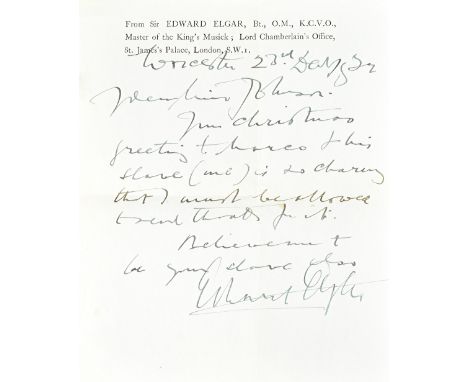 From Sir EDWARD ELGAR, Bt., O.M., K.C.V.O.,
Master of the King's Musick; Lord Chamberlain's Office,
St. James's Palace, London, S.W.1.
Worcester 23rd
Dear Miss Johnson.
Your Christmas
greeting to Marco & his
slave (me) is so charming
that I must be allowed
to send thanks for it.
Believe me to
be your slave also
Edward Elgar